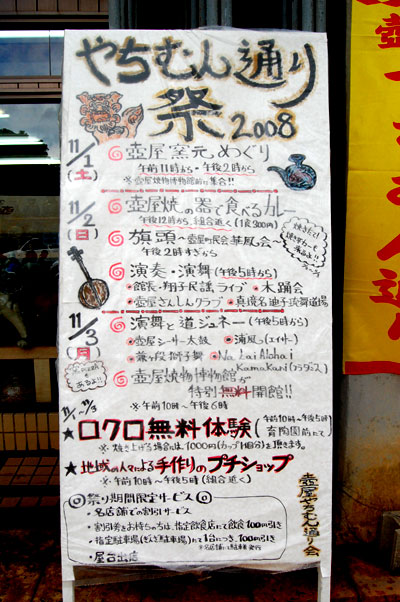 やちむん通り
祭 2008
11/1(土)
壺屋窯元めぐり
午前11時から・午後2時から
※壺屋焼物博物館前に集合!!
11/2(日)
壺屋焼の器で食べるカレー
午後12時から、組合近く(1食300円)
旗頭〜壺屋町民会華風会〜
午後2時すぎから
演奏・演舞(午後5時から)
・館長・翔子民謡ライブ ・木踊会
・壺屋さんしんクラブ ・真境名迪子琉舞道場
11/3(月)
演舞と道ジュネー(午後5時から)
・壺屋シーサー太鼓 ・浦風(エイサー)
・藤ヶ段獅子舞 ・Na Lei Aloha i
Kamakani(フラダンス)
壺屋焼物博物館が
特別無料開館!!
※午前10時〜午後6時
もあるよ!!
11/1〜11/3
★ロクロ無料体験(午前10時〜午後5時 育陶園前にて)
※焼き上げる場合には、1000円(カップ1個分)を頂きます。
★地域の人々による手作りのプチショップ
※午前10時〜午後5時(組合近く)
祭り期間限定サービス
・各店舗での割引サービス
・割引券をお持ちの方は、指定飲食店にて飲食100円引き
・指定駐車場(ぎんざ駐車場)にて1台につき、100円引き
※各店舗にて駐車券発行
・屋台出店
壺屋やちむん通り会